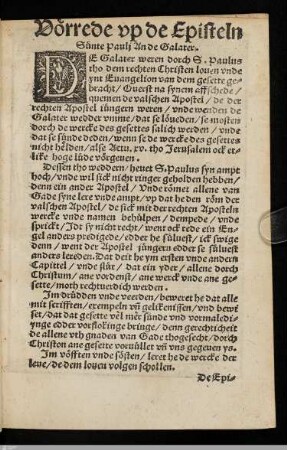 Vörrede vp de Episteln
Sünte Paulj An de Galater.
DE Galater weren dorch S. Paulus
tho dem rechten Christen louen vnde
ym Euangelion van dem gesette ge-
bracht / Ouerst na synem affschede /
quemen de valschen Apostel / de der
rechten Apostel jüngern weren / vnde wenden de
Galater wedder vmme / dat se löueden / se mosten
dorch de wercke des gesettes salich werden / vnde
dat se sünde deden / wenn se de wercke des gesettes
nicht hélden / alse Actu. xv. tho Jerusalem ock et-
like hoge lüde vörgeuen.
Dessen tho weddern / heuet S. Paulus syn ampt
hoch / vnde wil sick nicht ringer geholden hebben /
denn ein ander Apostel / Vnde römet allene van
Gade syne lere vnde ampt / vp dat he den röm der
valschen Apostel / de sick mit der rechten Aposteln
wercke vnde namen behülpen / dempede / vnde
sprickt / Idt sy nicht recht / went ock rede ein En-
gel anders predigede / edder he süluest / ick swige
denn / went der Apostel jüngern edder se süluest
anders lereden. Dat deit he ym ersten vnde andern
Capittel / vnde slüt / dat ein yder / allene dorch
Christum / ane vordenst / ane werck vnde ane ge-
sette / moth rechtuerdich werden.
Im drüdden vnde veerden / beweret he dat alle
mit schrifften / exempeln vñ gelikenissen / vnd bewy-
set / dat dat gesette vël mër sünde vnd vormaledi-
ynge edder vorflökinge bringe / denn gerechticheit
de allene vth gnaden van Gade thogesecht / dorch
Christon ane gesette vorvüllet vñ vns gegeuen ys.
Im vöfften vnde sösten / leret he de wercke der
leue / de dem louen volgen schollen.
De Epi-